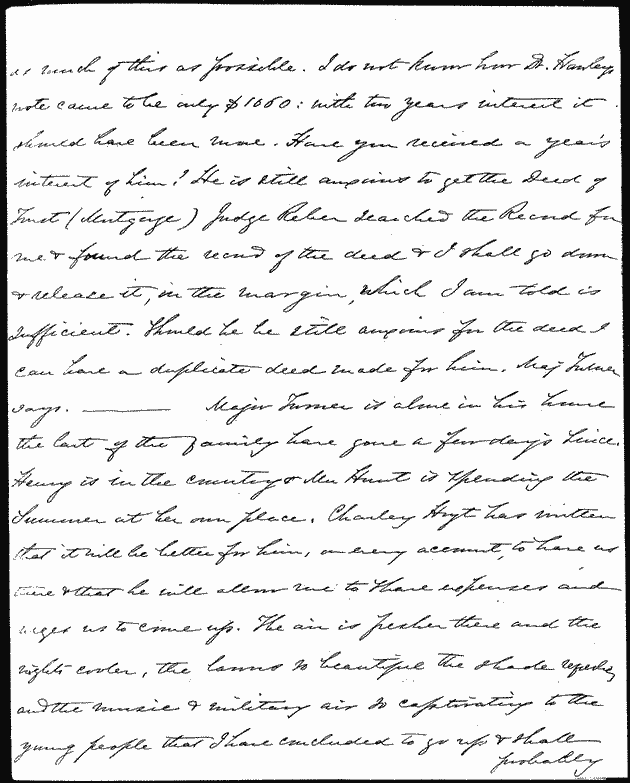 as much of this as possible. I do not know how Dr. Hawleys
note came to be only $1060: with two years interest it
should have been more. Have you received a year's
interest of him? He is still anxious to get the Deed of
Trust (Mortgage) Judge Reber searched the Record for
me & found the record of the deed & I shall go down
& release it, in the margin, which I am told is
sufficient. Should he be still anxious for the deed I
can have a duplicate deed made for him. Maj Turner
says. ——— Major Turner is alone in his house
the last of the family have gone a few days since.
Henry is in the country & Mrs Hunt is spending the
Summer at her own place. Charley Hoyt has written
that it will be better for him, on every account, to have us
there & that he will allow me to share expenses and
urges us to come up. The air is fresher there and the
nights cooler, the lawns so beautiful the shade refreshing
and the music & military air so captivating to the
young people that I have concluded to go up & shall
probably